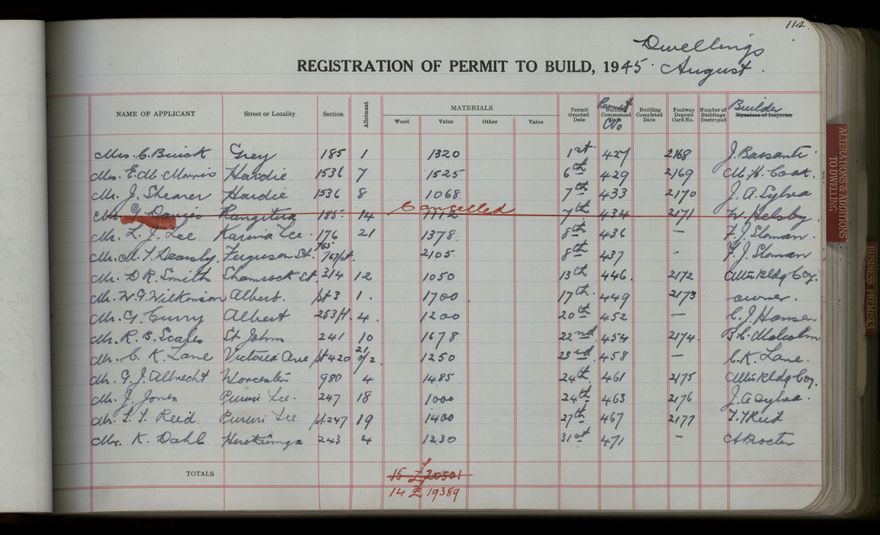 114
Dwellings
REGISTRATION OF PERMIT TO BUILD, 1945 August.
NAME OF APPLICANT Street or Locality Section Allotment MATERIALS Wood Value Other Value Permit Granted Date Permit No Building Completed Date Footway Deposit Card No. Number of Buildings Destroyed Builder
Mrs. C. Buick Grey 185 1 1320 1st 427 2168 J. Barsanti
Mrs. E.M. Morris Hardie 1536 7 1525 6th 429 2169 M. H. Cook
Mr. J. Shearer Hardie 1536 8 1068 7th 433 2170 J. A. Sylva
Mr. G. Davies Rangitira 185 14 1112 Cancelled 7th 434 2171 W. Helsby
Mr. L. J. Lee Karina Tce. 176 21 1378 8th 436 – F. J. Sloman
Mr. Ferguson St. 765 767pt. 2105 8th 437 – F. J. Sloman
Mr. D. R. Smith Shamrock St 314 12 1050 13th 446 2172 Bldg Coy.
Mr. W. G. Wilkinson Albert. pt 3 1. 1700 17th 449 2173 owner.
Mr. G. Curry Albert 253pt. 4. 1200 20th 452 – C. J. Hansen
Mr. R. B. Scales St Johns 241 10 1678 22nd 454 2174 B. C. Malcolm
Mr. C. K. Lane Victoria Ave pt 420 1250 23rd 458 – C. K. Lane.
Mr. G. J. Albrecht Worcester 980 4 1485 24th 461 2175 Bldg Coy.
Mr. J. Jones Puriri Tce. 247 18 1000 24th 463 2176 J. A Sylva.
Mr. T. T. Reid Puriri Tce pt 247 19 1400 27th 467 2177 T. T Reid
Mr. K. Dahl 243 4 1230 31st 471 – Procter
TOTALS 15 £ 20501
14 £ 19389
ALTERATIONS & ADDITIONS TO DWELLING
BUSINESS PREMISES